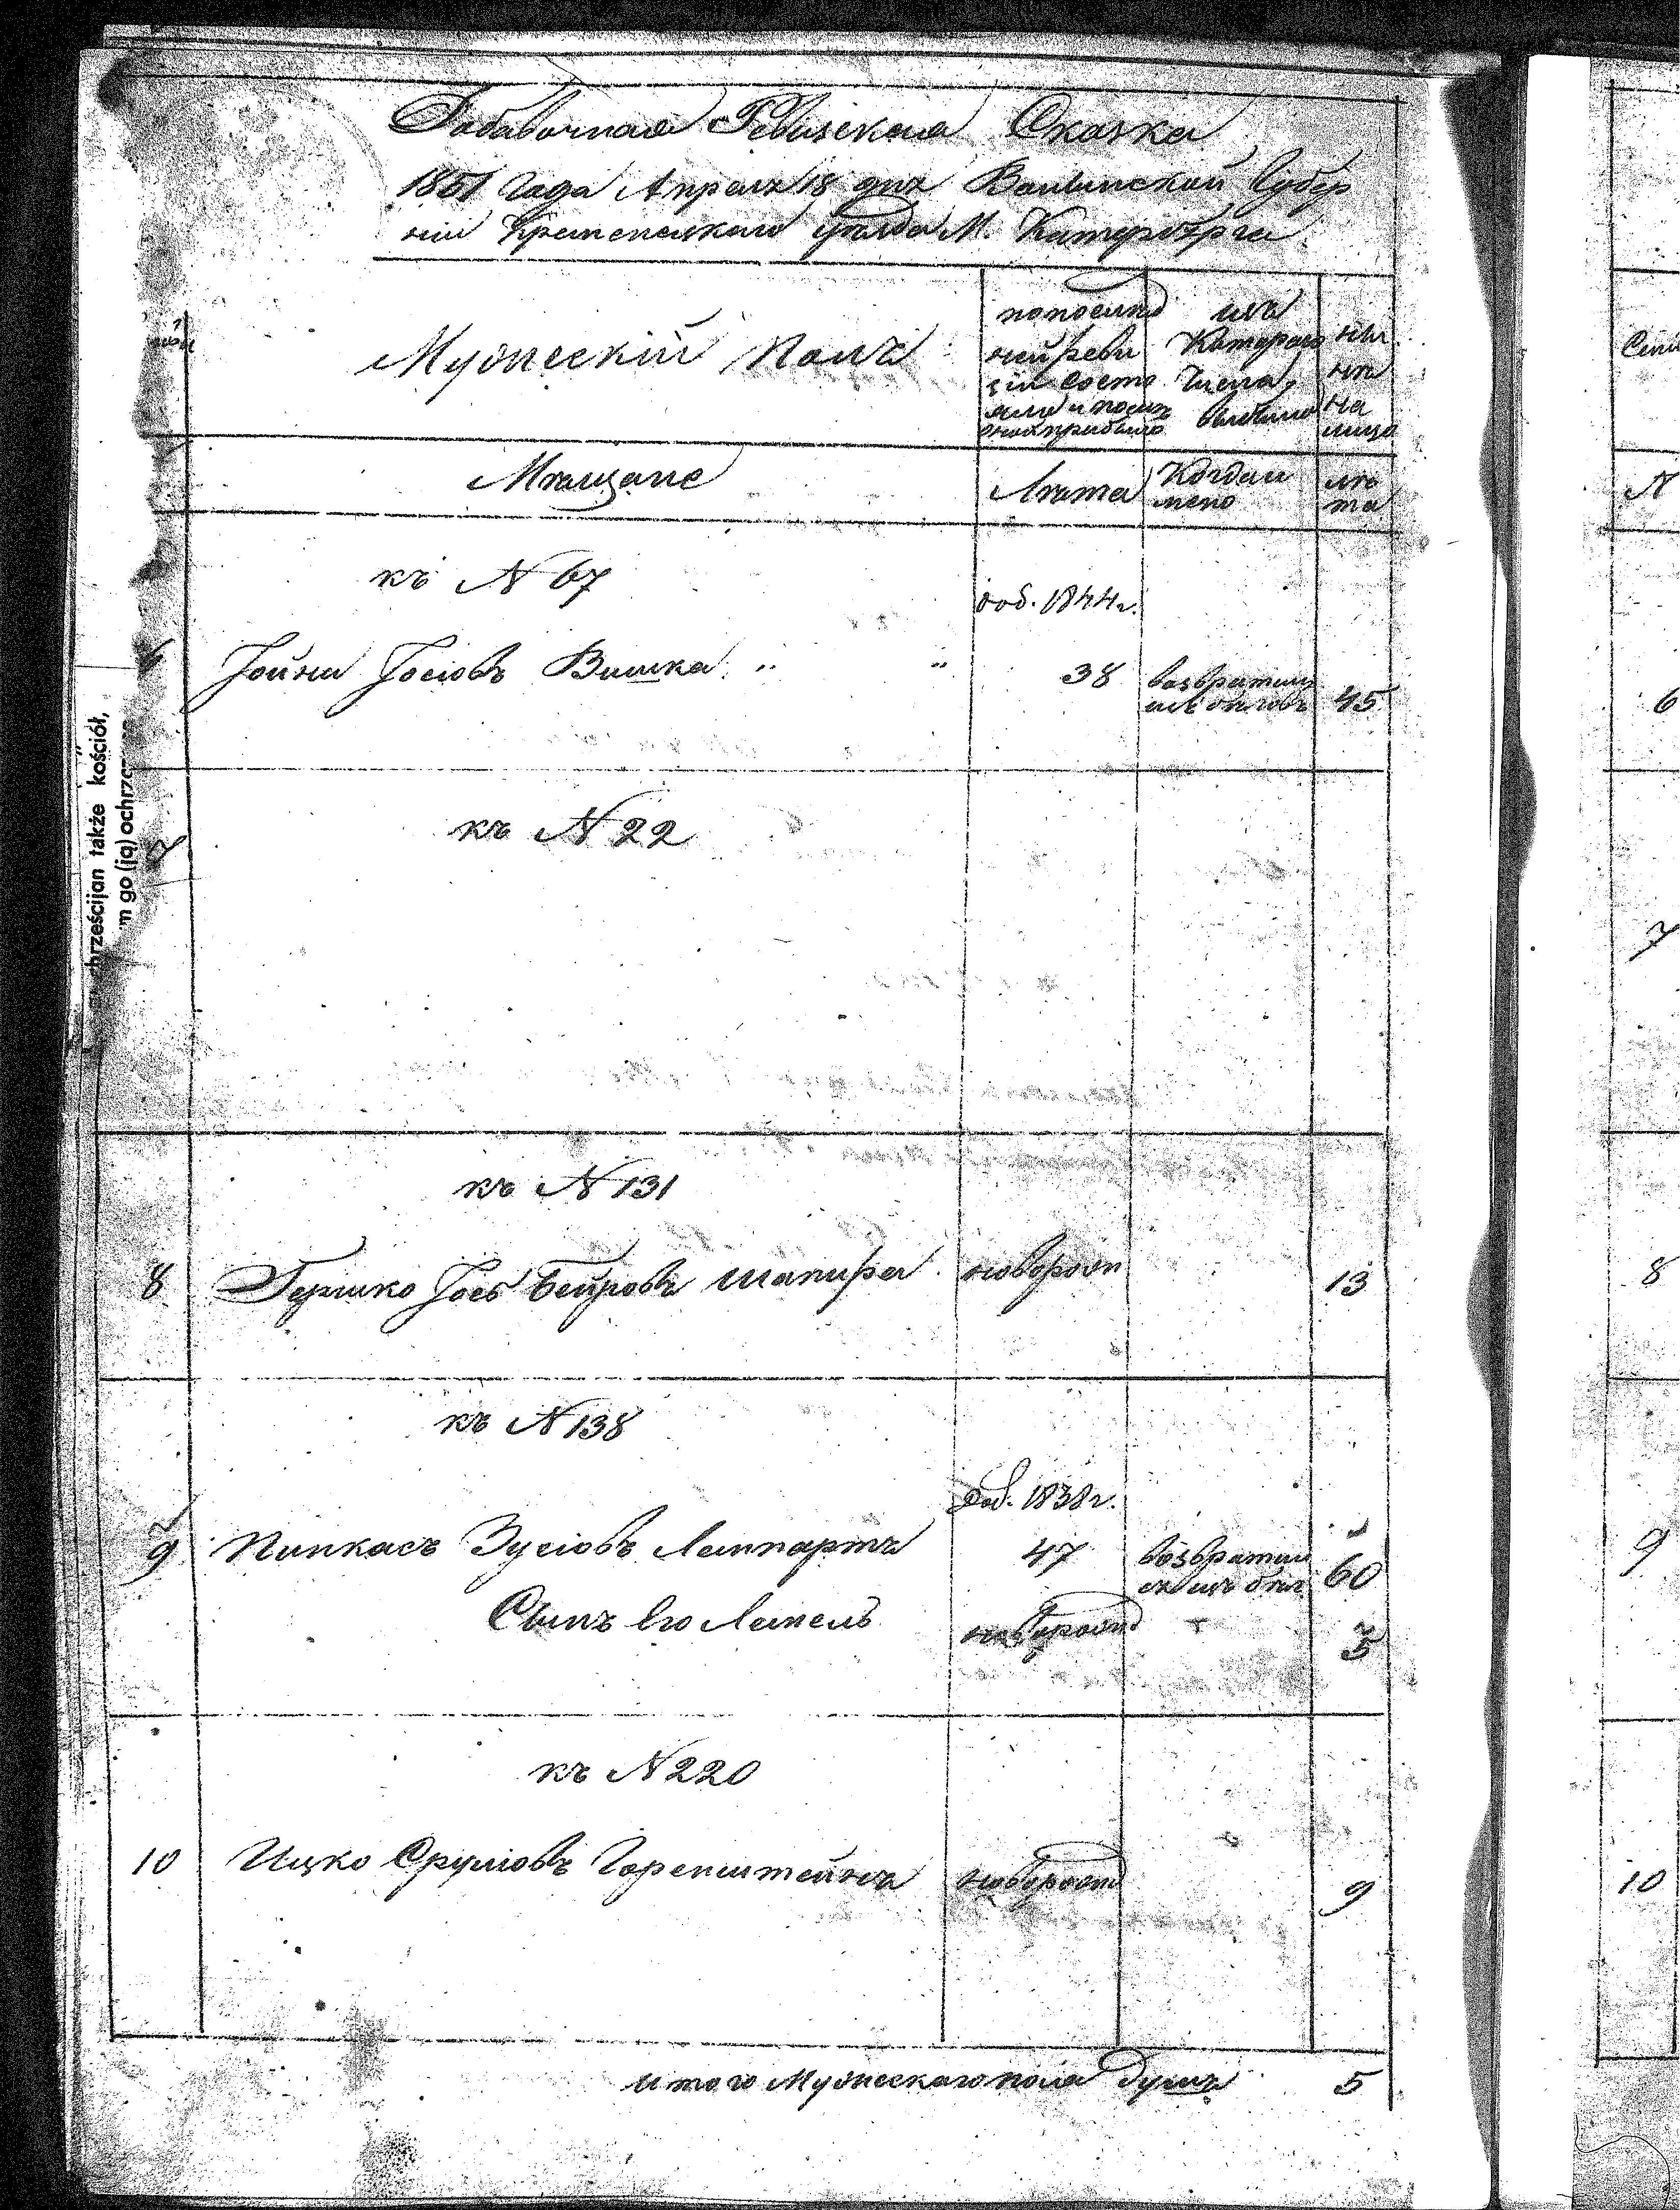 Добавочная Ревизская Сказка
1851 Года Апреля 18 дня Волынской Губер
нии Кременецкаго уезда М. Катербурга
Мужеский Полъ
по послед
ней реви
зіи состо
яло и после
оной прибыло
изъ
Котораго
числа
выбыло
ны
не
на
лицо
Мещане
Лета
Когда и
мено
ле
та
къ N 67
доб. 1844 г.
6 Іойна Іосіовъ Вишка " " 38 возвратил
ся беговъ 45
къ N 22
7
къ N 131
8 Гершко Іось Беировъ Шапира новорож 13
къ N 138
доб. 1838 г.
9 Пинкасъ Зусіовъ Лемпартъ 47 возвратил
ся изъ бег 60
Сынъ его Лейпель новорожд 5
къ N 220
10 Ицко Сруліовъ Горенштейнъ новорожд 9
итого Мужескаго пола душъ 5
hrześcijan także kościół,
m go (ją) ochrzc
N
6
7
8
9
10